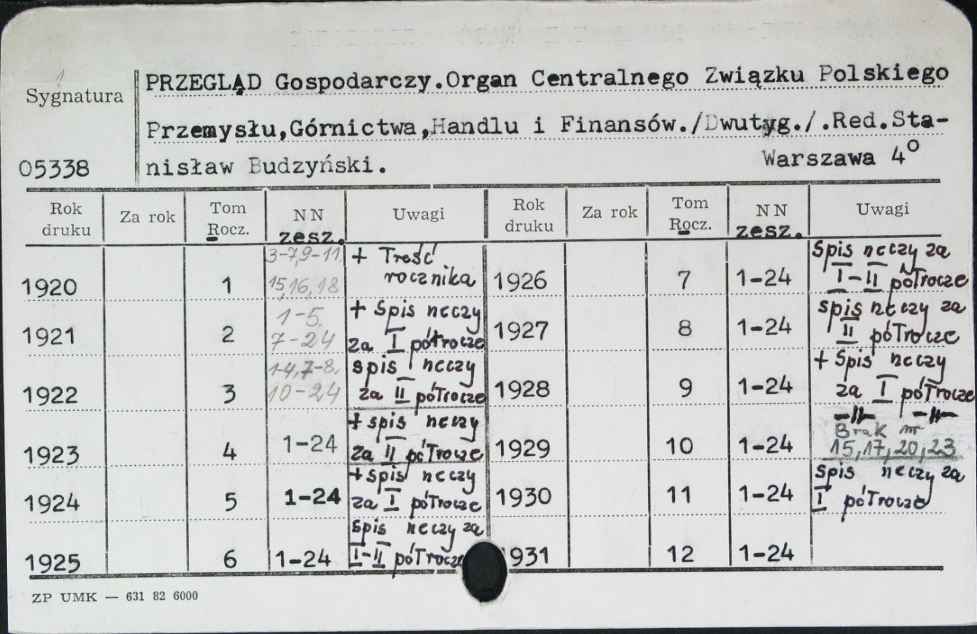 Sygnatura
05338
PRZEGLĄD Gospodarczy.Organ Centralnego Związku Polskiego
Przemysłu,Górnictwa,Handlu i Finansów./Dwutyg./.Red.Sta-
nisław Budzyński.
Warszawa 4°
Rok druku Za rok Tom Rocz. NN zesz. Uwagi Rok druku Za rok Tom Rocz. NN zesz. Uwagi
1920 1 3-7,9-11, 15,16,18 + Treść rocznika 1926 7 1-24 Spis rzeczy za I-II półrocze
1921 2 1-5. 7-24 + Spis rzeczy za I półrocze 1927 8 1-24 spis rzeczy za II półrocze
1922 3 1-4,7-8, 10-24 spis rzeczy za II półrocze 1928 9 1-24 + Spis rzeczy za I półrocze
1923 4 1-24 + spis rzeczy za II półrocze 1929 10 1-24 -"- -"- Brak nr 15,17,20,23
1924 5 1-24 + spis rzeczy za I półrocze 1930 11 1-24 spis rzeczy za I półrocze
1925 6 1-24 Spis rzeczy za I-II półrocze 1931 12 1-24
ZP UMK — 631 82 6000